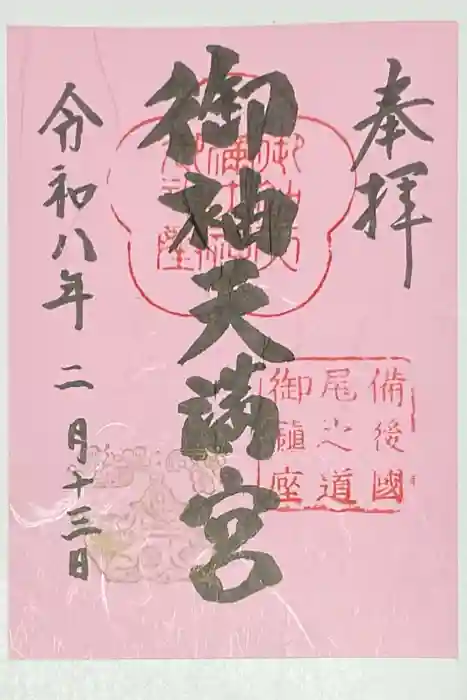 奉拝
備後國
尾之道
御鎮座
御袖天満宮
令和八年二月十三日